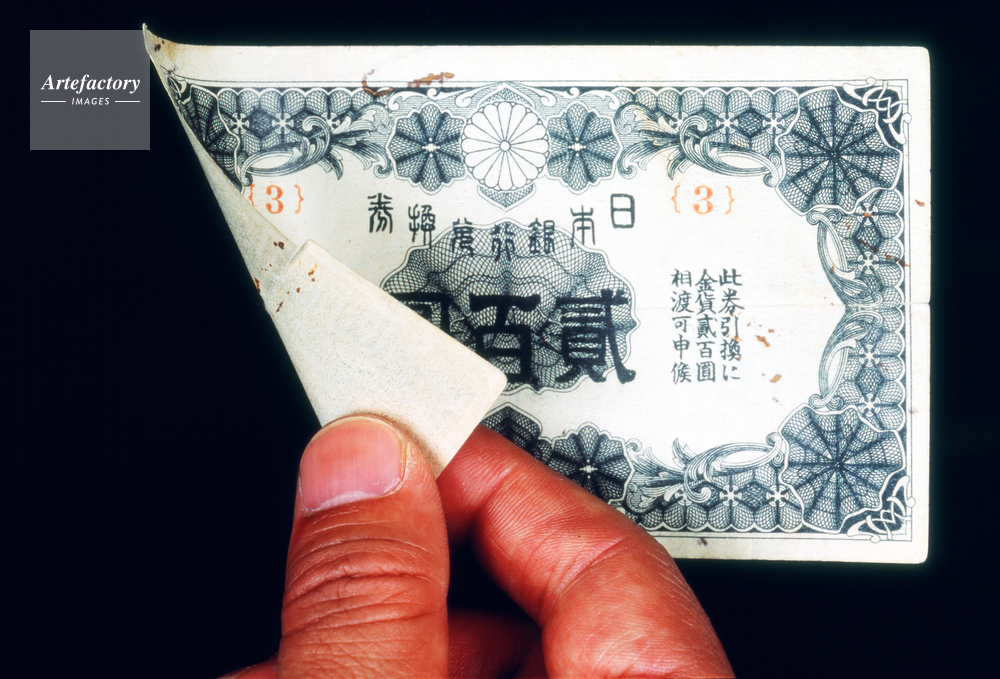 Artefactory
IMAGES
{3}
{3}
日本銀行兌換券
貳百圓
此券引換に
金貨貳百圓
相渡可申候